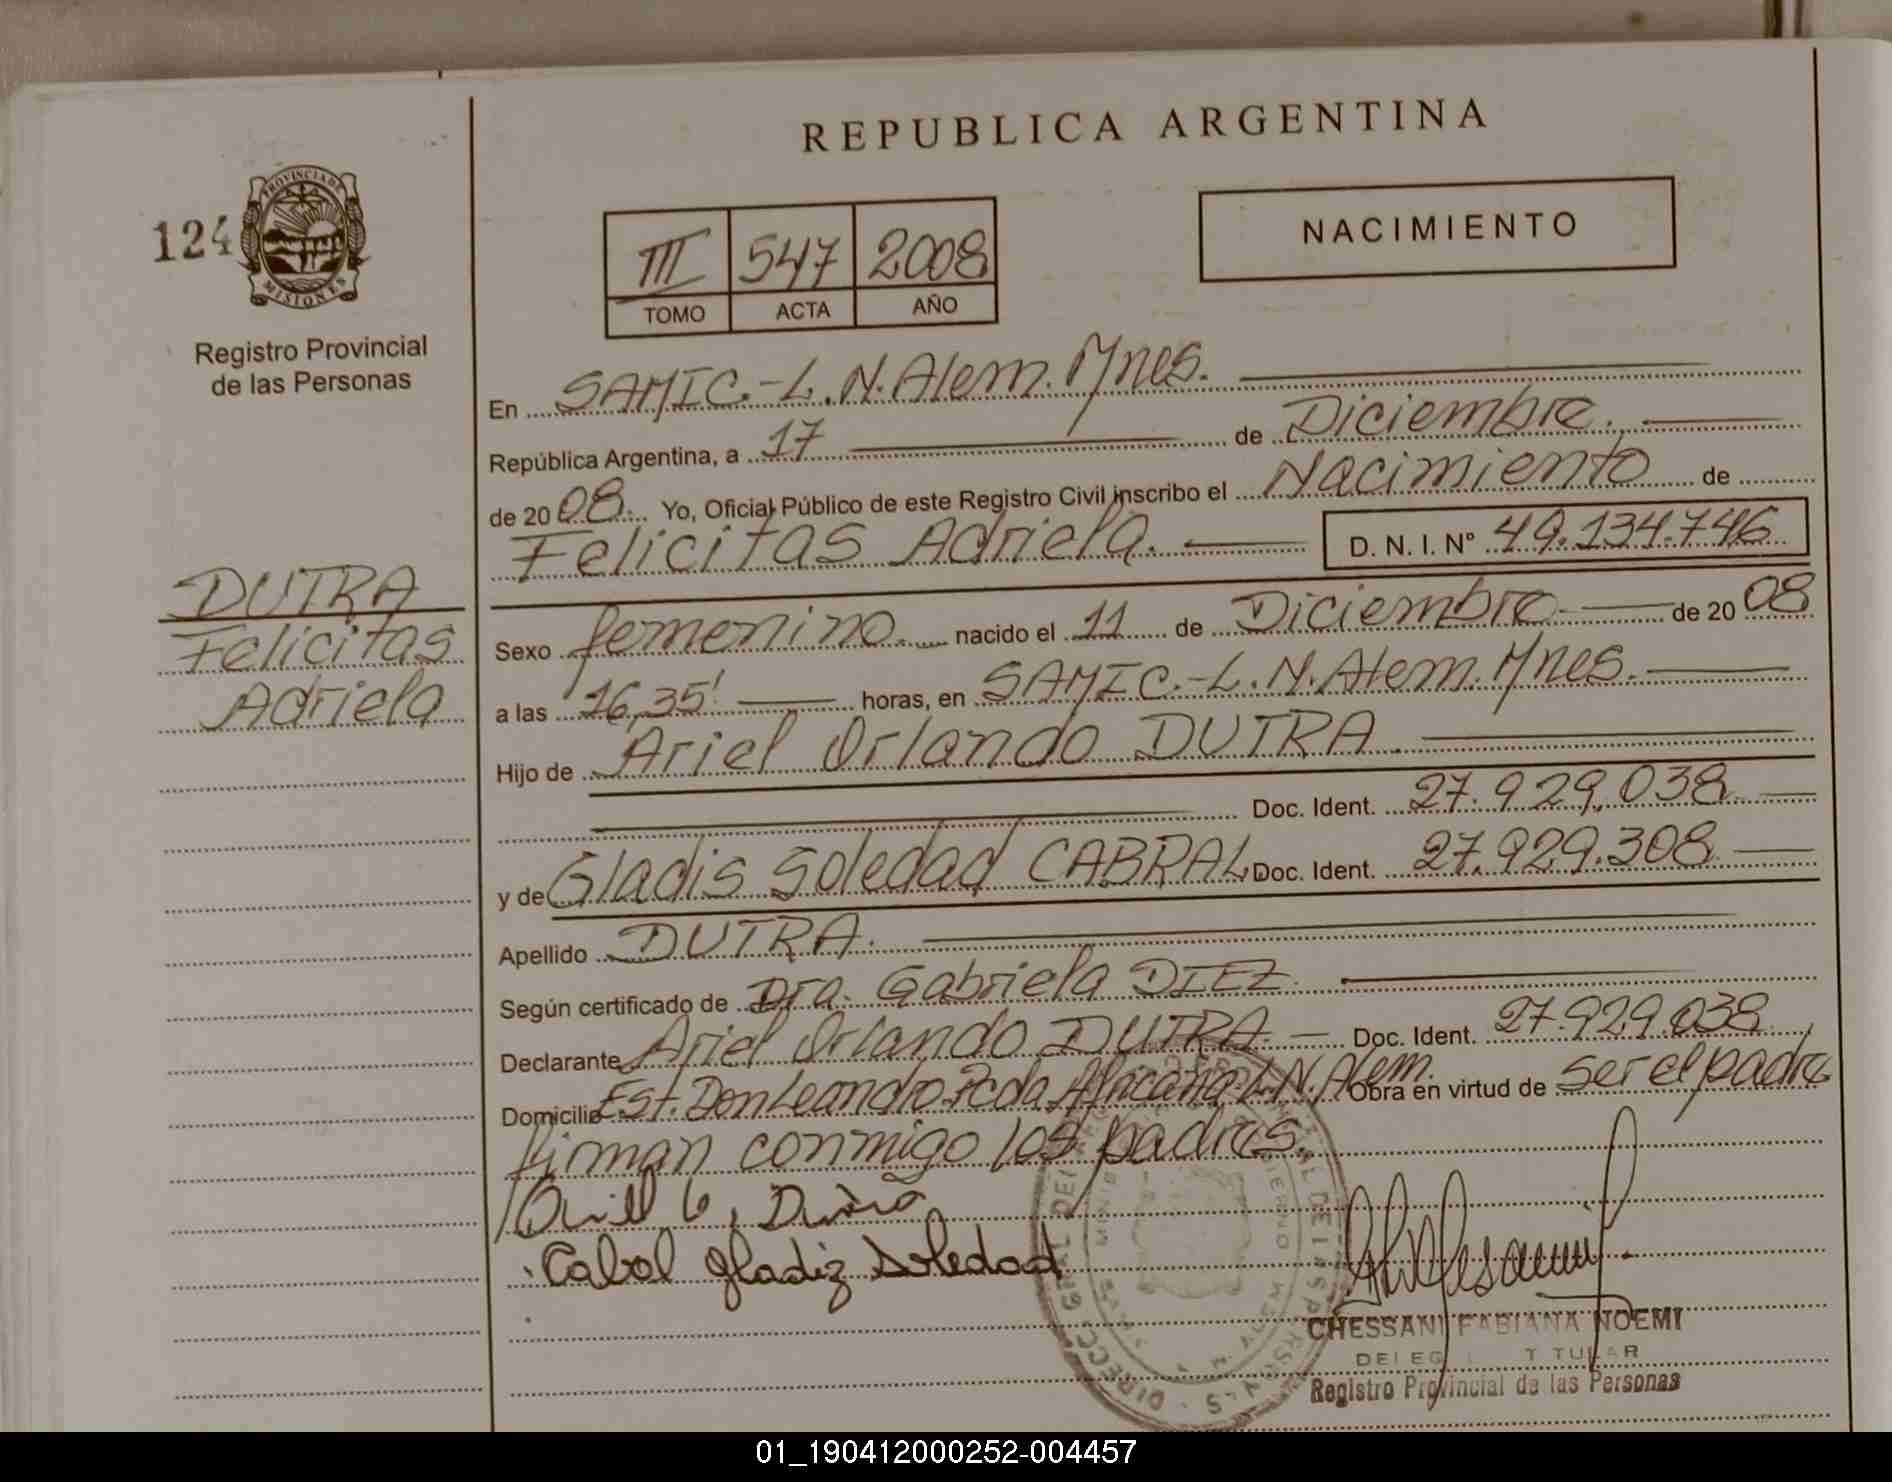 REPUBLICA ARGENTINA
124
PROVINCIA DE
MISIONES
Registro Provincial
de las Personas
III 547 2008
TOMO ACTA AÑO
NACIMIENTO
En SAMIC.-L.N.Alem.Mnes.
República Argentina, a 17 de Diciembre.
de 20 08. Yo, Oficial Público de este Registro Civil inscribo el Nacimiento de
Felicitas Adriela. D. N. I. N° 49.134.746
DUTRA
Felicitas
Adriela
Sexo femenino. nacido el 11 de Diciembre de 20 08
a las 16,35' horas, en SAMIC.-L.N.Alem.Mnes.
Hijo de Ariel Orlando DUTRA
Doc. Ident. 27.929.038
y de Gladis Soledad CABRAL Doc. Ident. 27.929.308
Apellido DUTRA.
Según certificado de Dra. Gabriela DIEZ
Declarante Ariel Orlando DUTRA. Doc. Ident. 27.929.038
Domicilio Est. Don Leandro Pcda Africana-L.N.Alem. Obra en virtud de ser el padre
firman conmigo los padres.
Cabol Gladiz Soledad
CHESSANI FABIANA NOEMI
TITULAR
Registro Provincial de las Personas
01_190412000252-004457